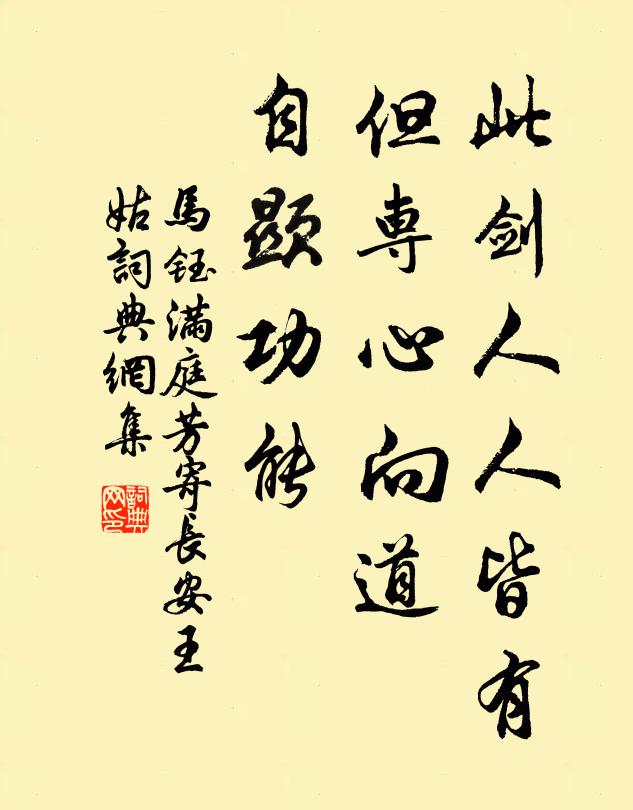 此劍人人皆有
但專心向道
自顯功能
馬鈺滿庭芳寄長安王
姑詞典網集
詞典
网印